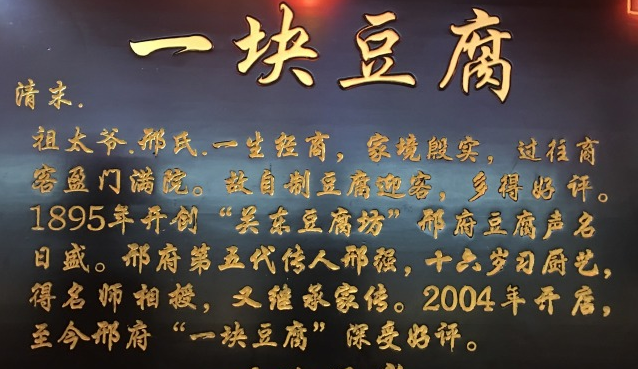 一块豆腐
清末.
祖太爷.邢氏.一生经商，家境殷实，过往商
客盈门满院。故自制豆腐迎客，多得好评。
1895年开创“关东豆腐坊”邢府豆腐声名
日盛。邢府第五代传人邢强，十六岁习厨艺，
得名师相授，又继承家传。2004年开店，
至今邢府“一块豆腐”深受好评。